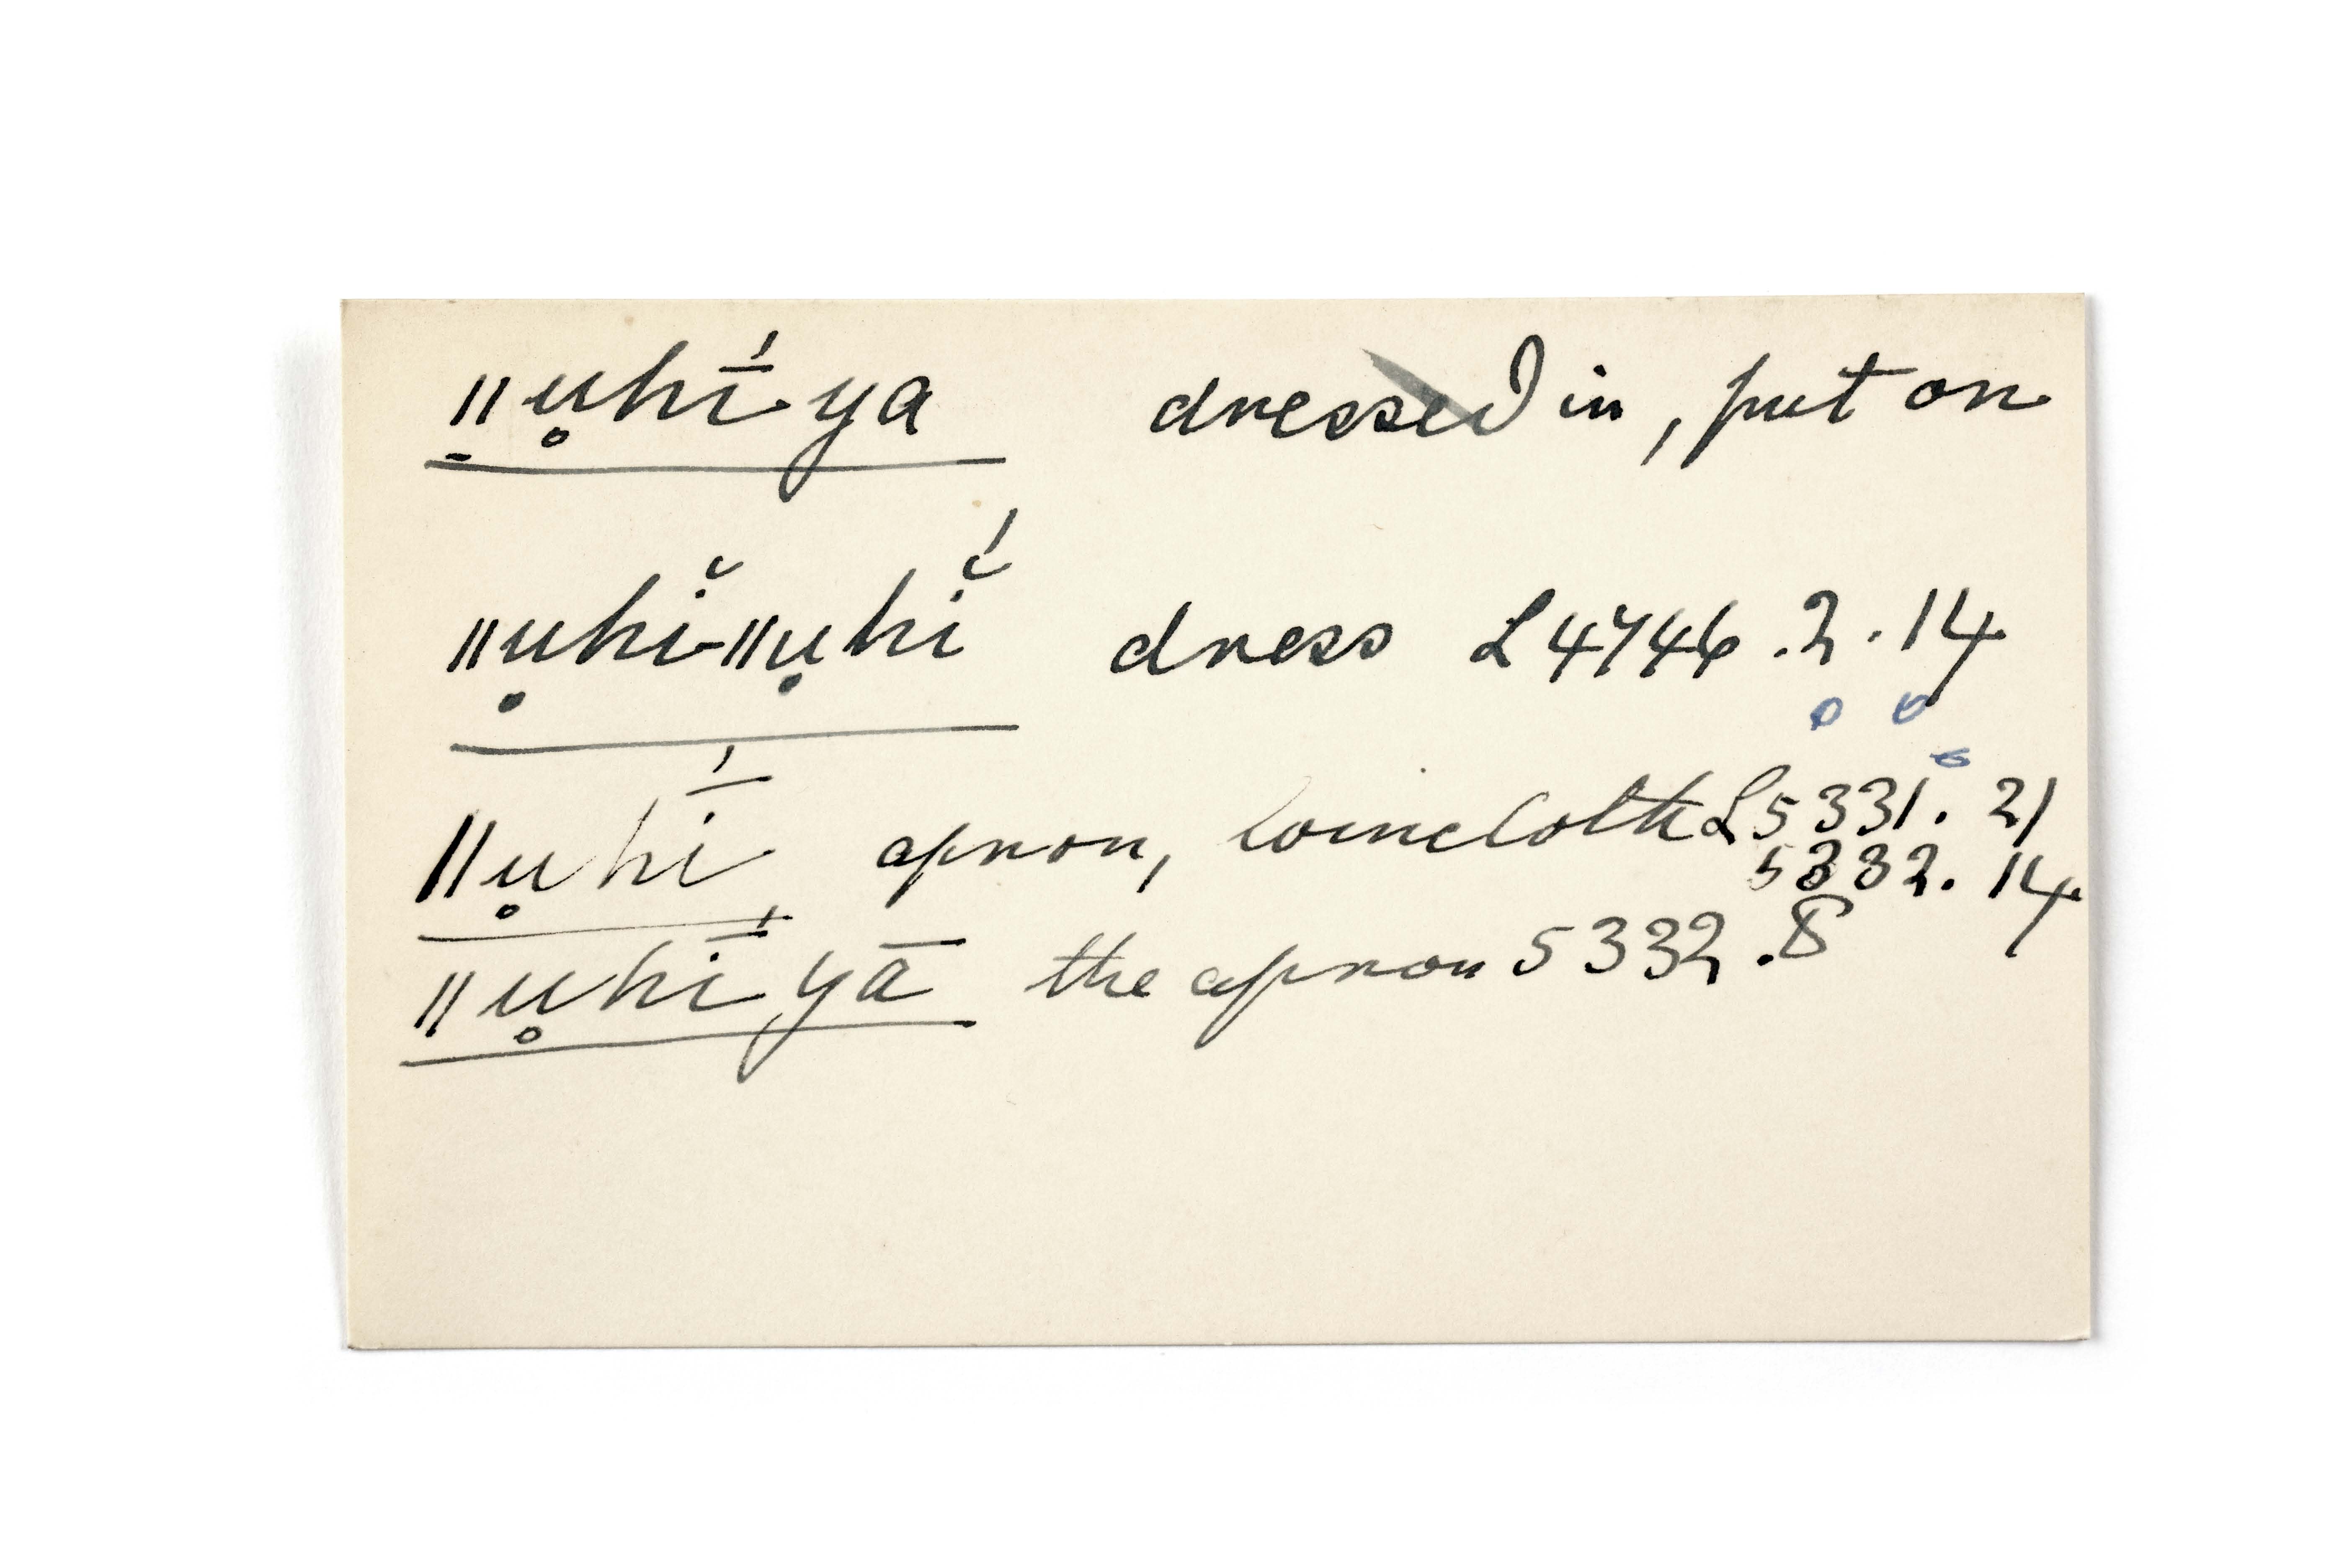 ǁu̥hī́ ya dressed in, put on
ǁu̥hĭ-ǁu̥hĭ́ dress L 4746.2.14
ǁu̥hī́ apron, loincloth L 5331.21
5332.14
ǁu̥hī́ yā the apron 5332.8